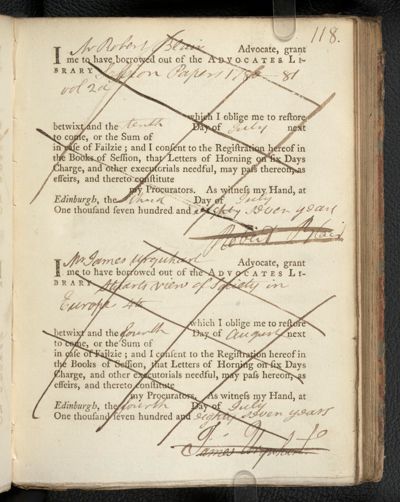 118.
I Mr Robert Blair Advocate, grant
me to have borrowed out of the ADVOCATES LI-
BRARY Session Papers 17 81
vol 2d
which I oblige me to restore
betwixt and the tenth Day of July next
to come, or the Sum of
in case of Failzie; and I consent to the Registration hereof in
the Books of Session, that Letters of Horning on six Days
Charge, and other executorials needful, may pass thereon, as
effeirs, and thereto constitute
my Procurators. As witness my Hand, at
Edinburgh, the third Day of July
One thousand seven hundred and eighty seven years
Robert Blair
I Mr James Urquhart Advocate, grant
me to have borrowed out of the ADVOCATES LI-
BRARY Stuarts view of Society in
Europe 4to
which I oblige me to restore
betwixt and the fourth Day of August next
to come, or the Sum of
in case of Failzie; and I consent to the Registration hereof in
the Books of Session, that Letters of Horning on six Days
Charge, and other executorials needful, may pass thereon, as
effeirs, and thereto constitute
my Procurators. As witness my Hand, at
Edinburgh, the fourth Day of July
One thousand seven hundred and eighty seven years
James Urquhart